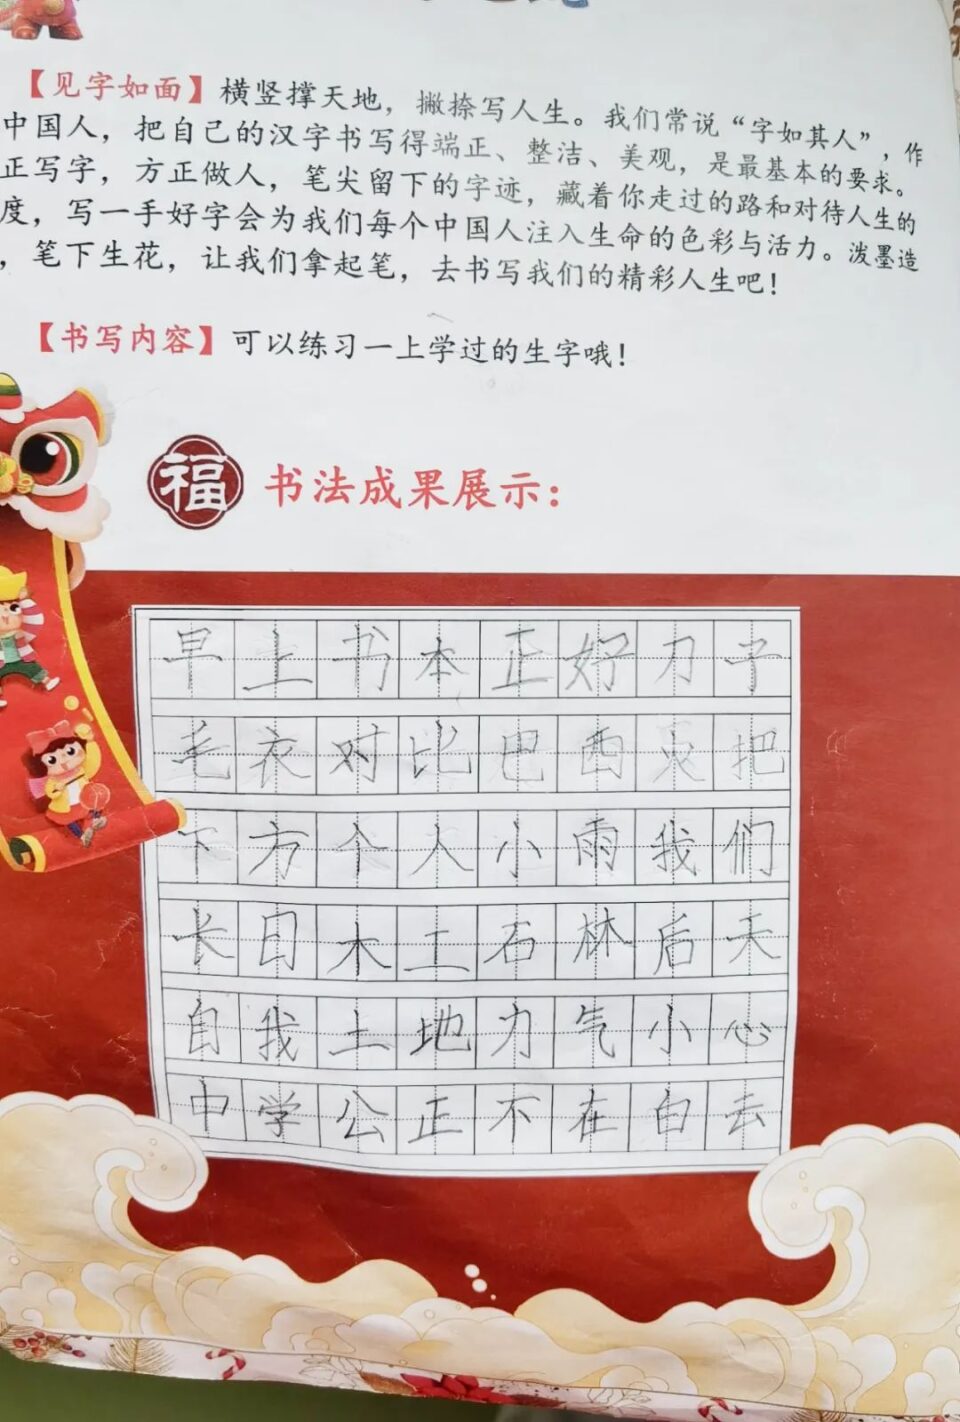 【见字如面】横竖撑天地，撇捺写人生。我们常说“字如其人”，作
中国人，把自己的汉字书写得端正、整洁、美观，是最基本的要求。
正写字，方正做人，笔尖留下的字迹，藏着你走过的路和对待人生的
度，写一手好字会为我们每个中国人注入生命的色彩与活力。泼墨造
，笔下生花，让我们拿起笔，去书写我们的精彩人生吧！
【书写内容】可以练习一上学过的生字哦！
福 书法成果展示：
早上书本正好刀子
毛衣对比巴西 把
下方个人小雨我们
长日木工石林后天
自我土地力气小心
中学公正不在白去